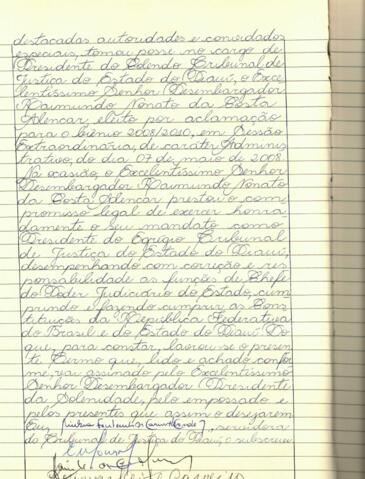 destacadas autoridades e convidados
especiais, tomou posse no cargo de
Presidente do Colendo Tribunal de
Justiça do Estado do Piauí, o Exce-
lentíssimo Senhor Desembargador
Raimundo Nonato da Costa
Alencar, eleito por aclamação
para o biênio 2008/2010, em Sessão
Extraordinária, de caráter Adminis-
trativo, do dia 07 de maio de 2008.
Na ocasião, o Excelentíssimo Senhor
Desembargador Raimundo Nonato
da Costa Alencar prestou o com-
promisso legal de exercer honra-
damente o seu mandato como
Presidente do Egrégio Tribunal
de Justiça do Estado do Piauí,
desempenhando com correção e res-
ponsabilidade as funções de Chefe
do Poder Judiciário do Estado, cum-
prindo e fazendo cumprir as Cons-
tituições da República Federativa
do Brasil e do Estado do Piauí. Do
que, para constar, lavrou-se o presen-
te Termo que, lido e achado confor-
me, vai assinado pelo Excelentíssimo
Senhor Desembargador Presidente
da Solenidade, pelo empossado e
pelos presentes que assim o desejarem
Eu, servidora
do Tribunal de Justiça do Piauí, o subscrevi